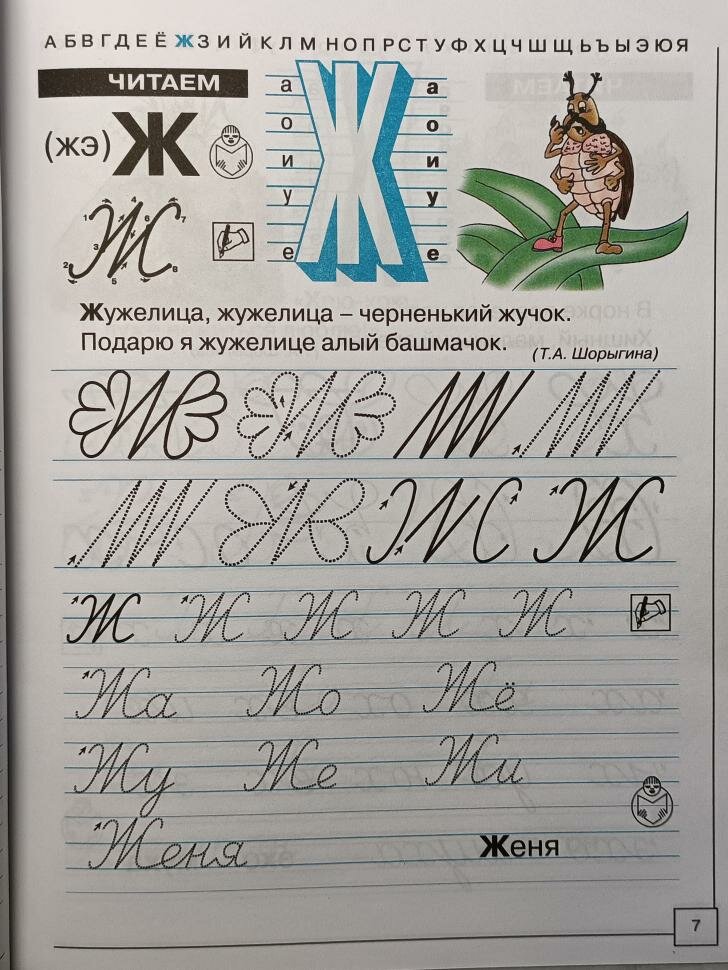 А Б В Г Д Е Ё Ж З И Й К Л М Н О П Р С Т У Ф Х Ц Ч Ш Щ Ь Ъ Ы Э Ю Я
ЧИТАЕМ
(жэ) Ж
а Ж а
о о
и и
у у
е е
Ж
1 2 3 4 5 6 7 8
Жужелица, жужелица – черненький жучок.
Подарю я жужелице алый башмачок.
(Т.А. Шорыгина)
Ж Ж
Ж Ж
Ж Ж Ж Ж Ж
Жа Жо Жё
Жу Же Жи
Женя Женя
7